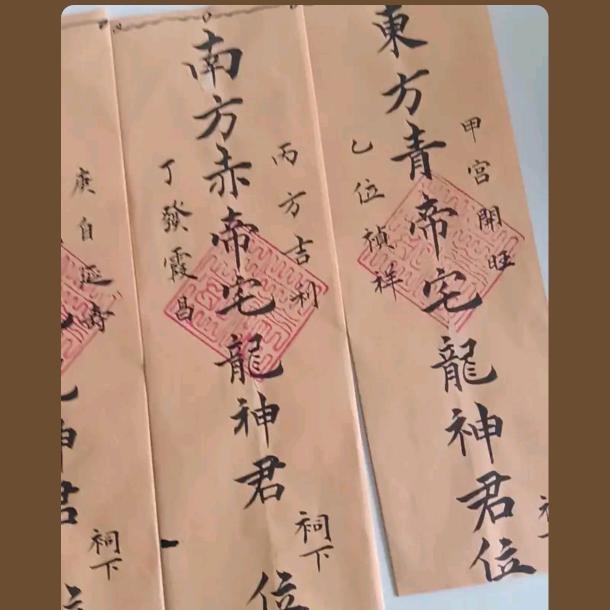 甲宮開旺
東方青帝宅龍神君位
乙位禎祥
祠
丙方吉利
南方赤帝宅龍神君位
丁發霞昌
祠下
神君位
庚自延壽
祠下